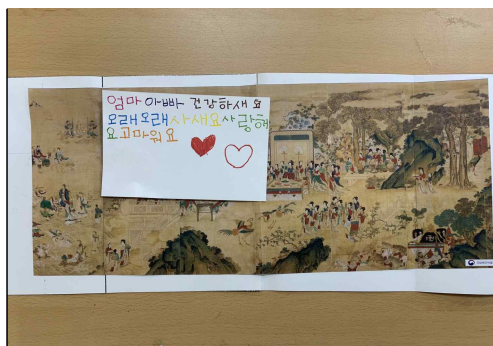 엄마 아빠 건강하새요
오래오래 사새요사랑해
요고마워요